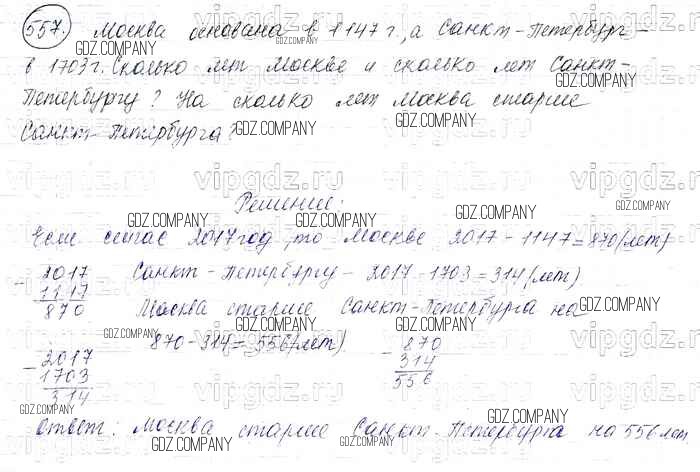 557. Москва основана в 1147 г., а Санкт-Петербург –
в 1703 г. Сколько лет Москве и сколько лет Санкт-
Петербургу? На сколько лет Москва старше
Санкт-Петербурга?
Решение:
Если сейчас 2017 год, то Москве 2017 - 1147 = 870 (лет)
- 2017
1147
870
Санкт-Петербургу - 2017 - 1703 = 314 (лет)
Москва старше Санкт-Петербурга на
870 - 314 = 556 (лет)
- 2017
1703
314
- 870
314
556
Ответ: Москва старше Санкт-Петербурга на 556 лет
GDZ.COMPANY
vipgdz.ru